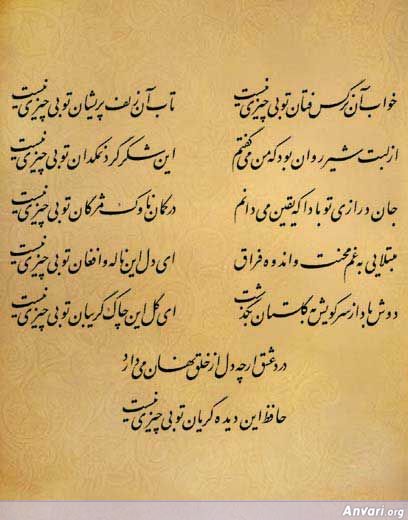 خواب آن نرگس فتان تو بی چیزی نیست
تاب آن زلف پریشان تو بی چیزی نیست
از لبت شیر روان بود که من می گفتم
این شکر گرد نمکدان تو بی چیزی نیست
جان درازی تو بادا که یقین می دانم
در کمان ناوک مژگان تو بی چیزی نیست
مبتلایی به غم محنت و اندوه فراق
ای دل این ناله و افغان تو بی چیزی نیست
دوش باد از سر کویش به گلستان بگذشت
ای گل این چاک گریبان تو بی چیزی نیست
درد عشق ار چه دل از خلق نهان می دارد
حافظ این دیده گریان تو بی چیزی نیست
Anvari.org